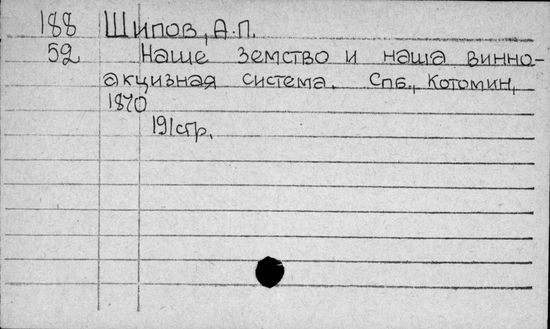 188 Шипов, А.П.
52 Наше земство и наша винно-
акцизная система. Спб., Котомин,
1870
191стр.